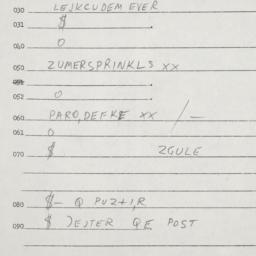 030 LEJKCUDEM EVER
031 $
040 0
050 ZUMERSPRINKLS XX
052 0
060 PARO, DEFKE XX / —
061 0
070 $ ZGULE
080 $— Q PUZ+1,R
090 $ JEJTER QE POST